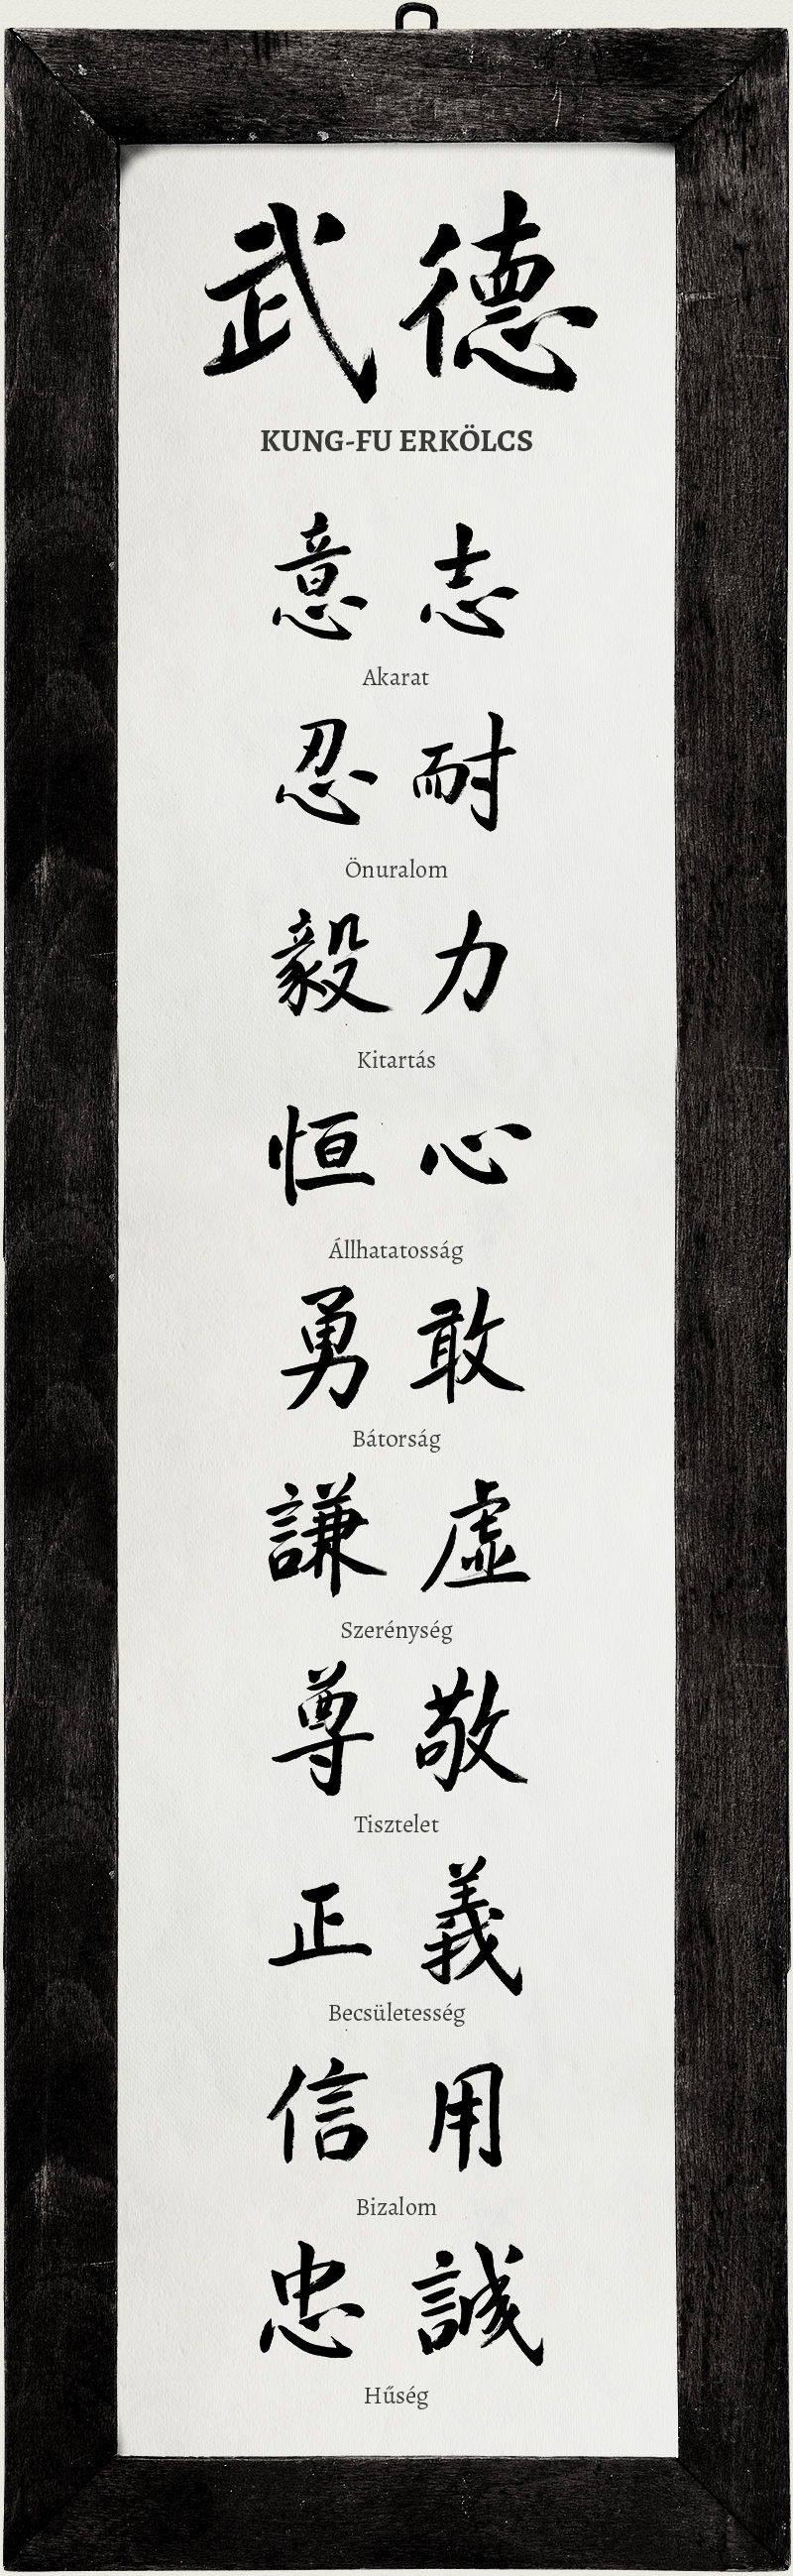 武德
KUNG-FU ERKÖLCS
意志
Akarat
忍耐
Önuralom
毅力
Kitartás
恒心
Állhatatosság
勇敢
Bátorság
謙虛
Szerénység
尊敬
Tisztelet
正義
Becsületesség
信用
Bizalom
忠誠
Hűség